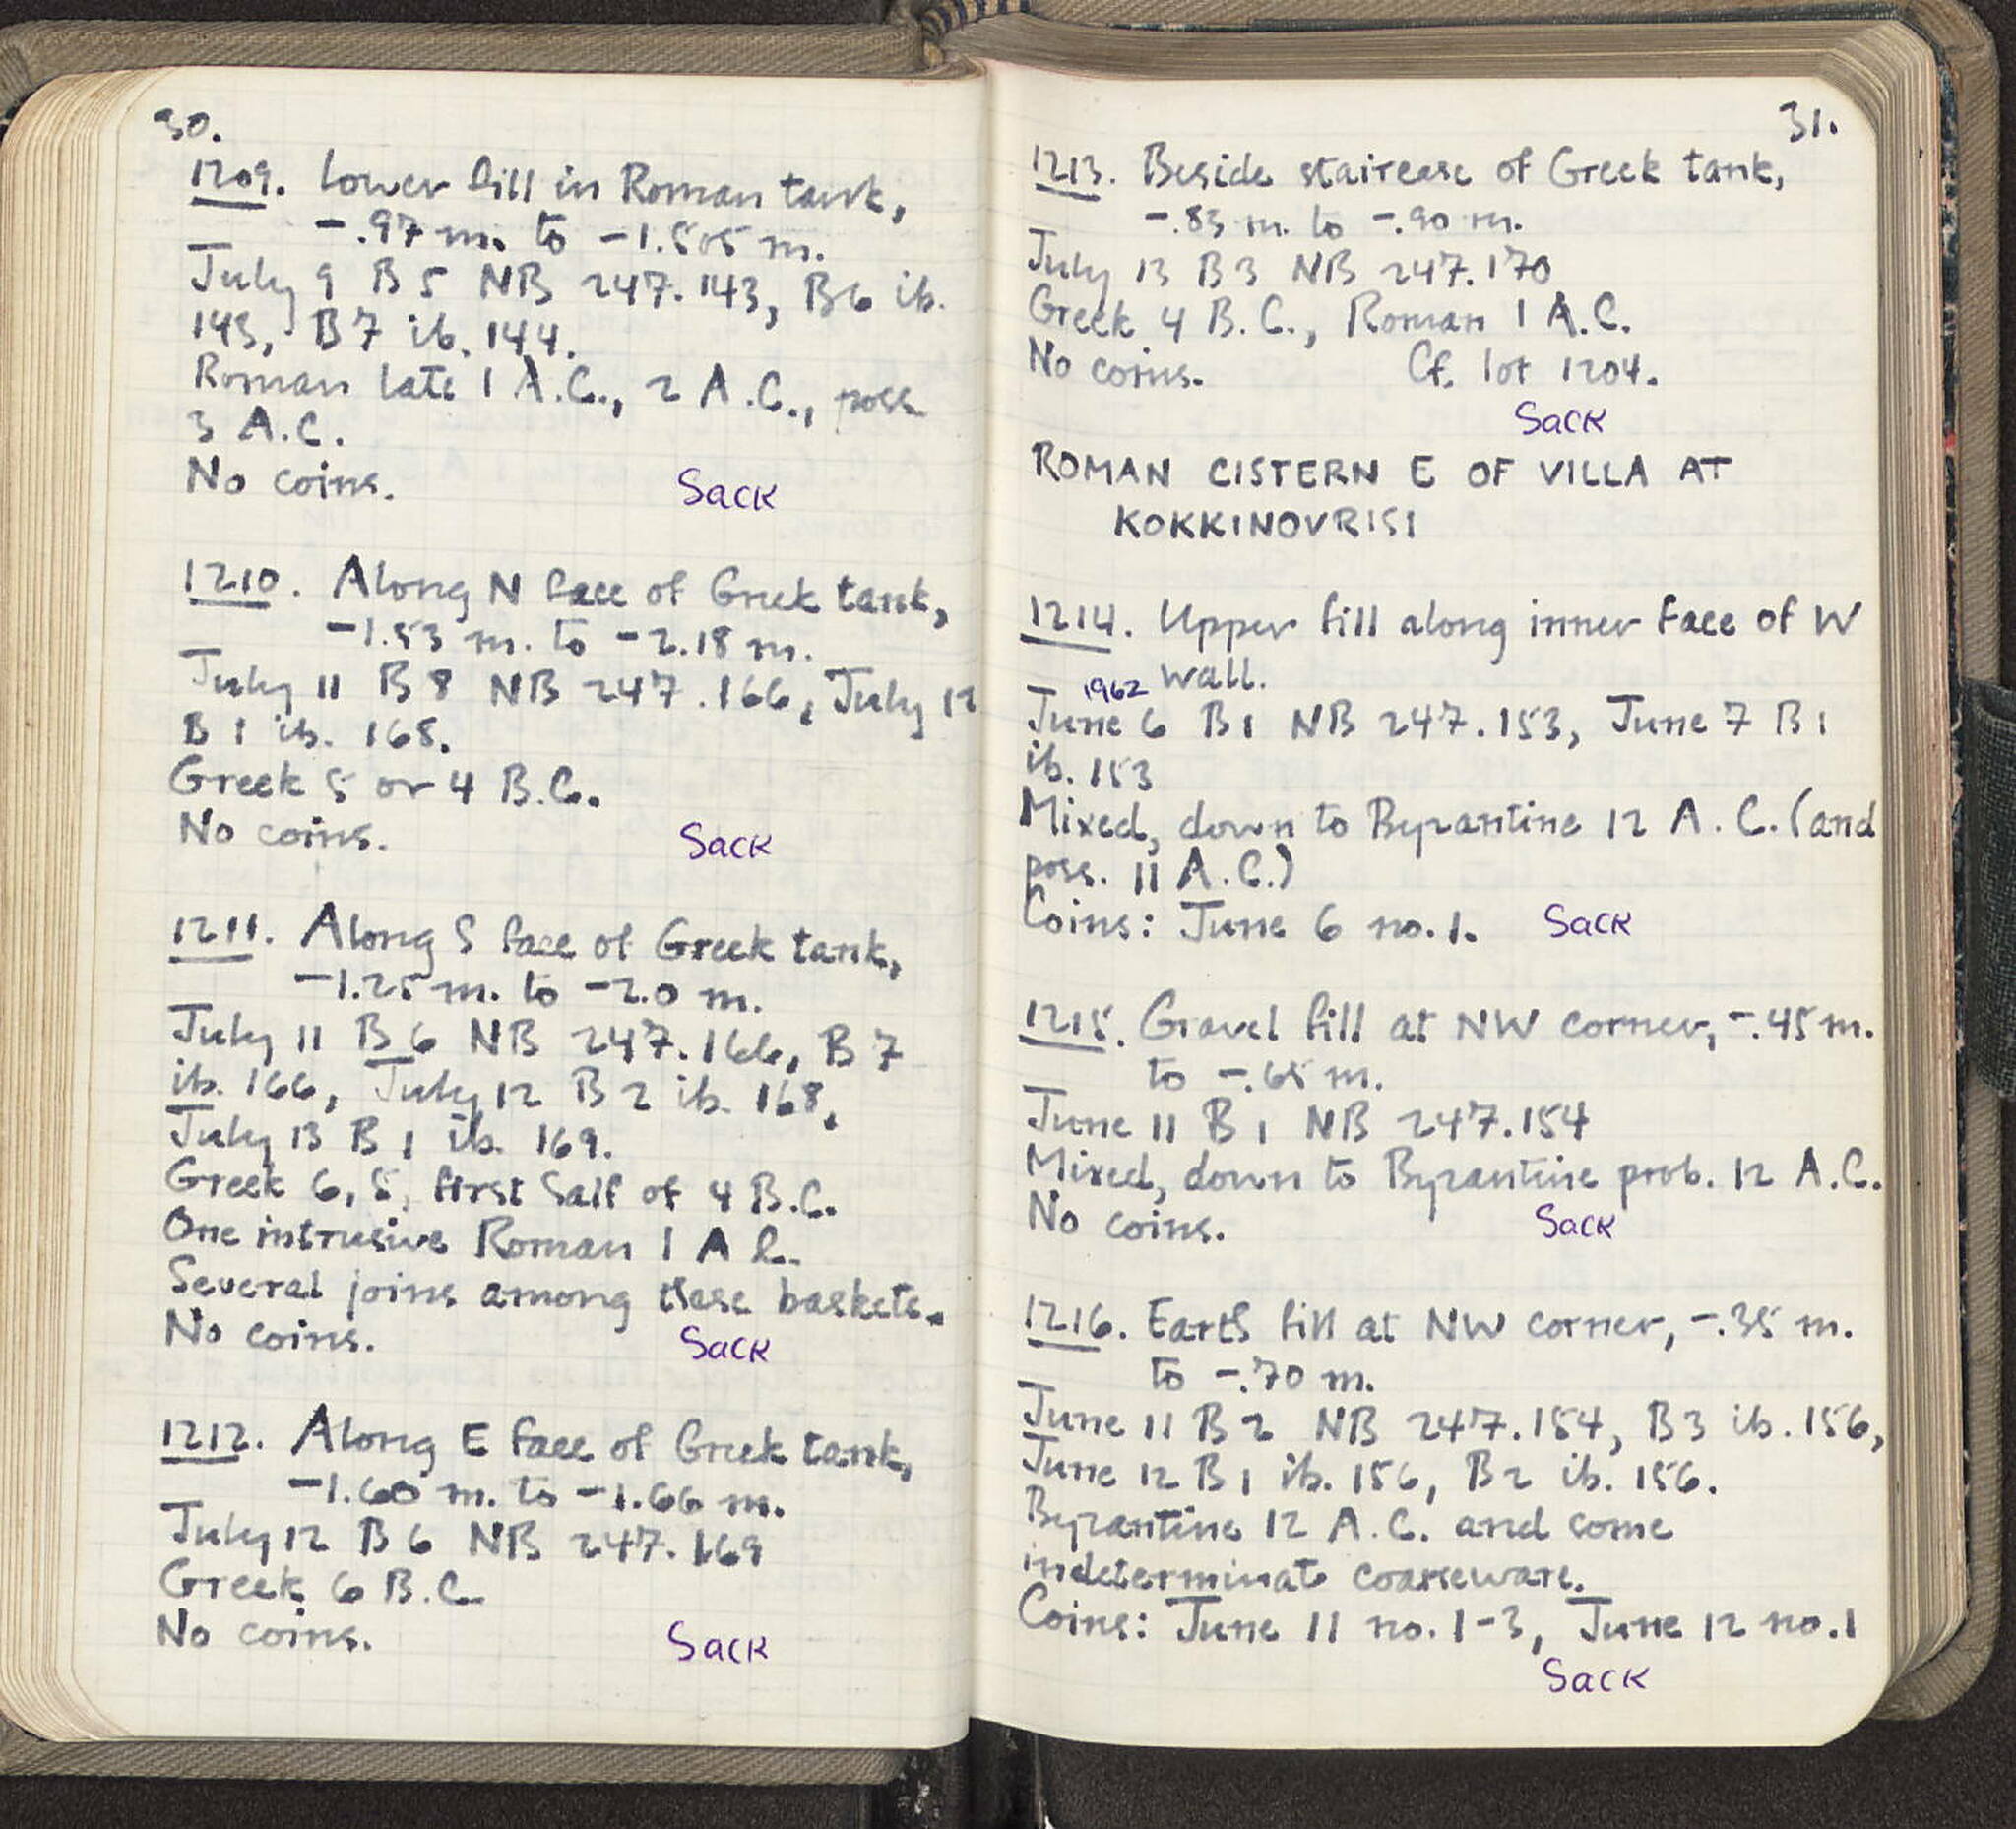 30.
1209. Lower fill in Roman tank,
-.97 m. to -1.505 m.
July 9 B 5 NB 247.143, B6 ib.
143, B7 ib. 144.
Roman late 1 A.C., 2 A.C., poss.
3 A.C.
No coins. Sack
1210. Along N face of Greek tank,
-1.53 m. to -2.18 m.
July 11 B 8 NB 247.166, July 12
B 1 ib. 168.
Greek 5 or 4 B.C.
No coins. Sack
1211. Along S face of Greek tank,
-1.25 m. to -2.0 m.
July 11 B 6 NB 247.166, B 7
ib. 166, July 12 B 2 ib. 168,
July 13 B 1 ib. 169.
Greek 6, 5, first half of 4 B.C.
One intrusive Roman 1 A C.
Several joins among these baskets.
No coins. Sack
1212. Along E face of Greek tank,
-1.60 m. to -1.66 m.
July 12 B 6 NB 247.169
Greek 6 B.C.
No coins. Sack
31.
1213. Beside staircase of Greek tank,
-.83 m. to -.90 m.
July 13 B 3 NB 247.170
Greek 4 B.C., Roman 1 A.C.
No coins. Cf. lot 1204.
Sack
ROMAN CISTERN E OF VILLA AT
KOKKINOVRISI
1214. Upper fill along inner face of W
wall.
1962
June 6 B1 NB 247.153, June 7 B1
ib. 153
Mixed, down to Byzantine 12 A.C. (and
poss. 11 A.C.)
Coins: June 6 no. 1. Sack
1215. Gravel fill at NW corner, -.45 m.
to -.65 m.
June 11 B 1 NB 247.154
Mixed, down to Byzantine prob. 12 A.C.
No coins. Sack
1216. Earth fill at NW corner, -.35 m.
to -.70 m.
June 11 B 2 NB 247.154, B 3 ib. 156,
June 12 B 1 ib. 156, B 2 ib. 156.
Byzantine 12 A.C. and some
indeterminate coarseware.
Coins: June 11 no. 1-3, June 12 no. 1
Sack